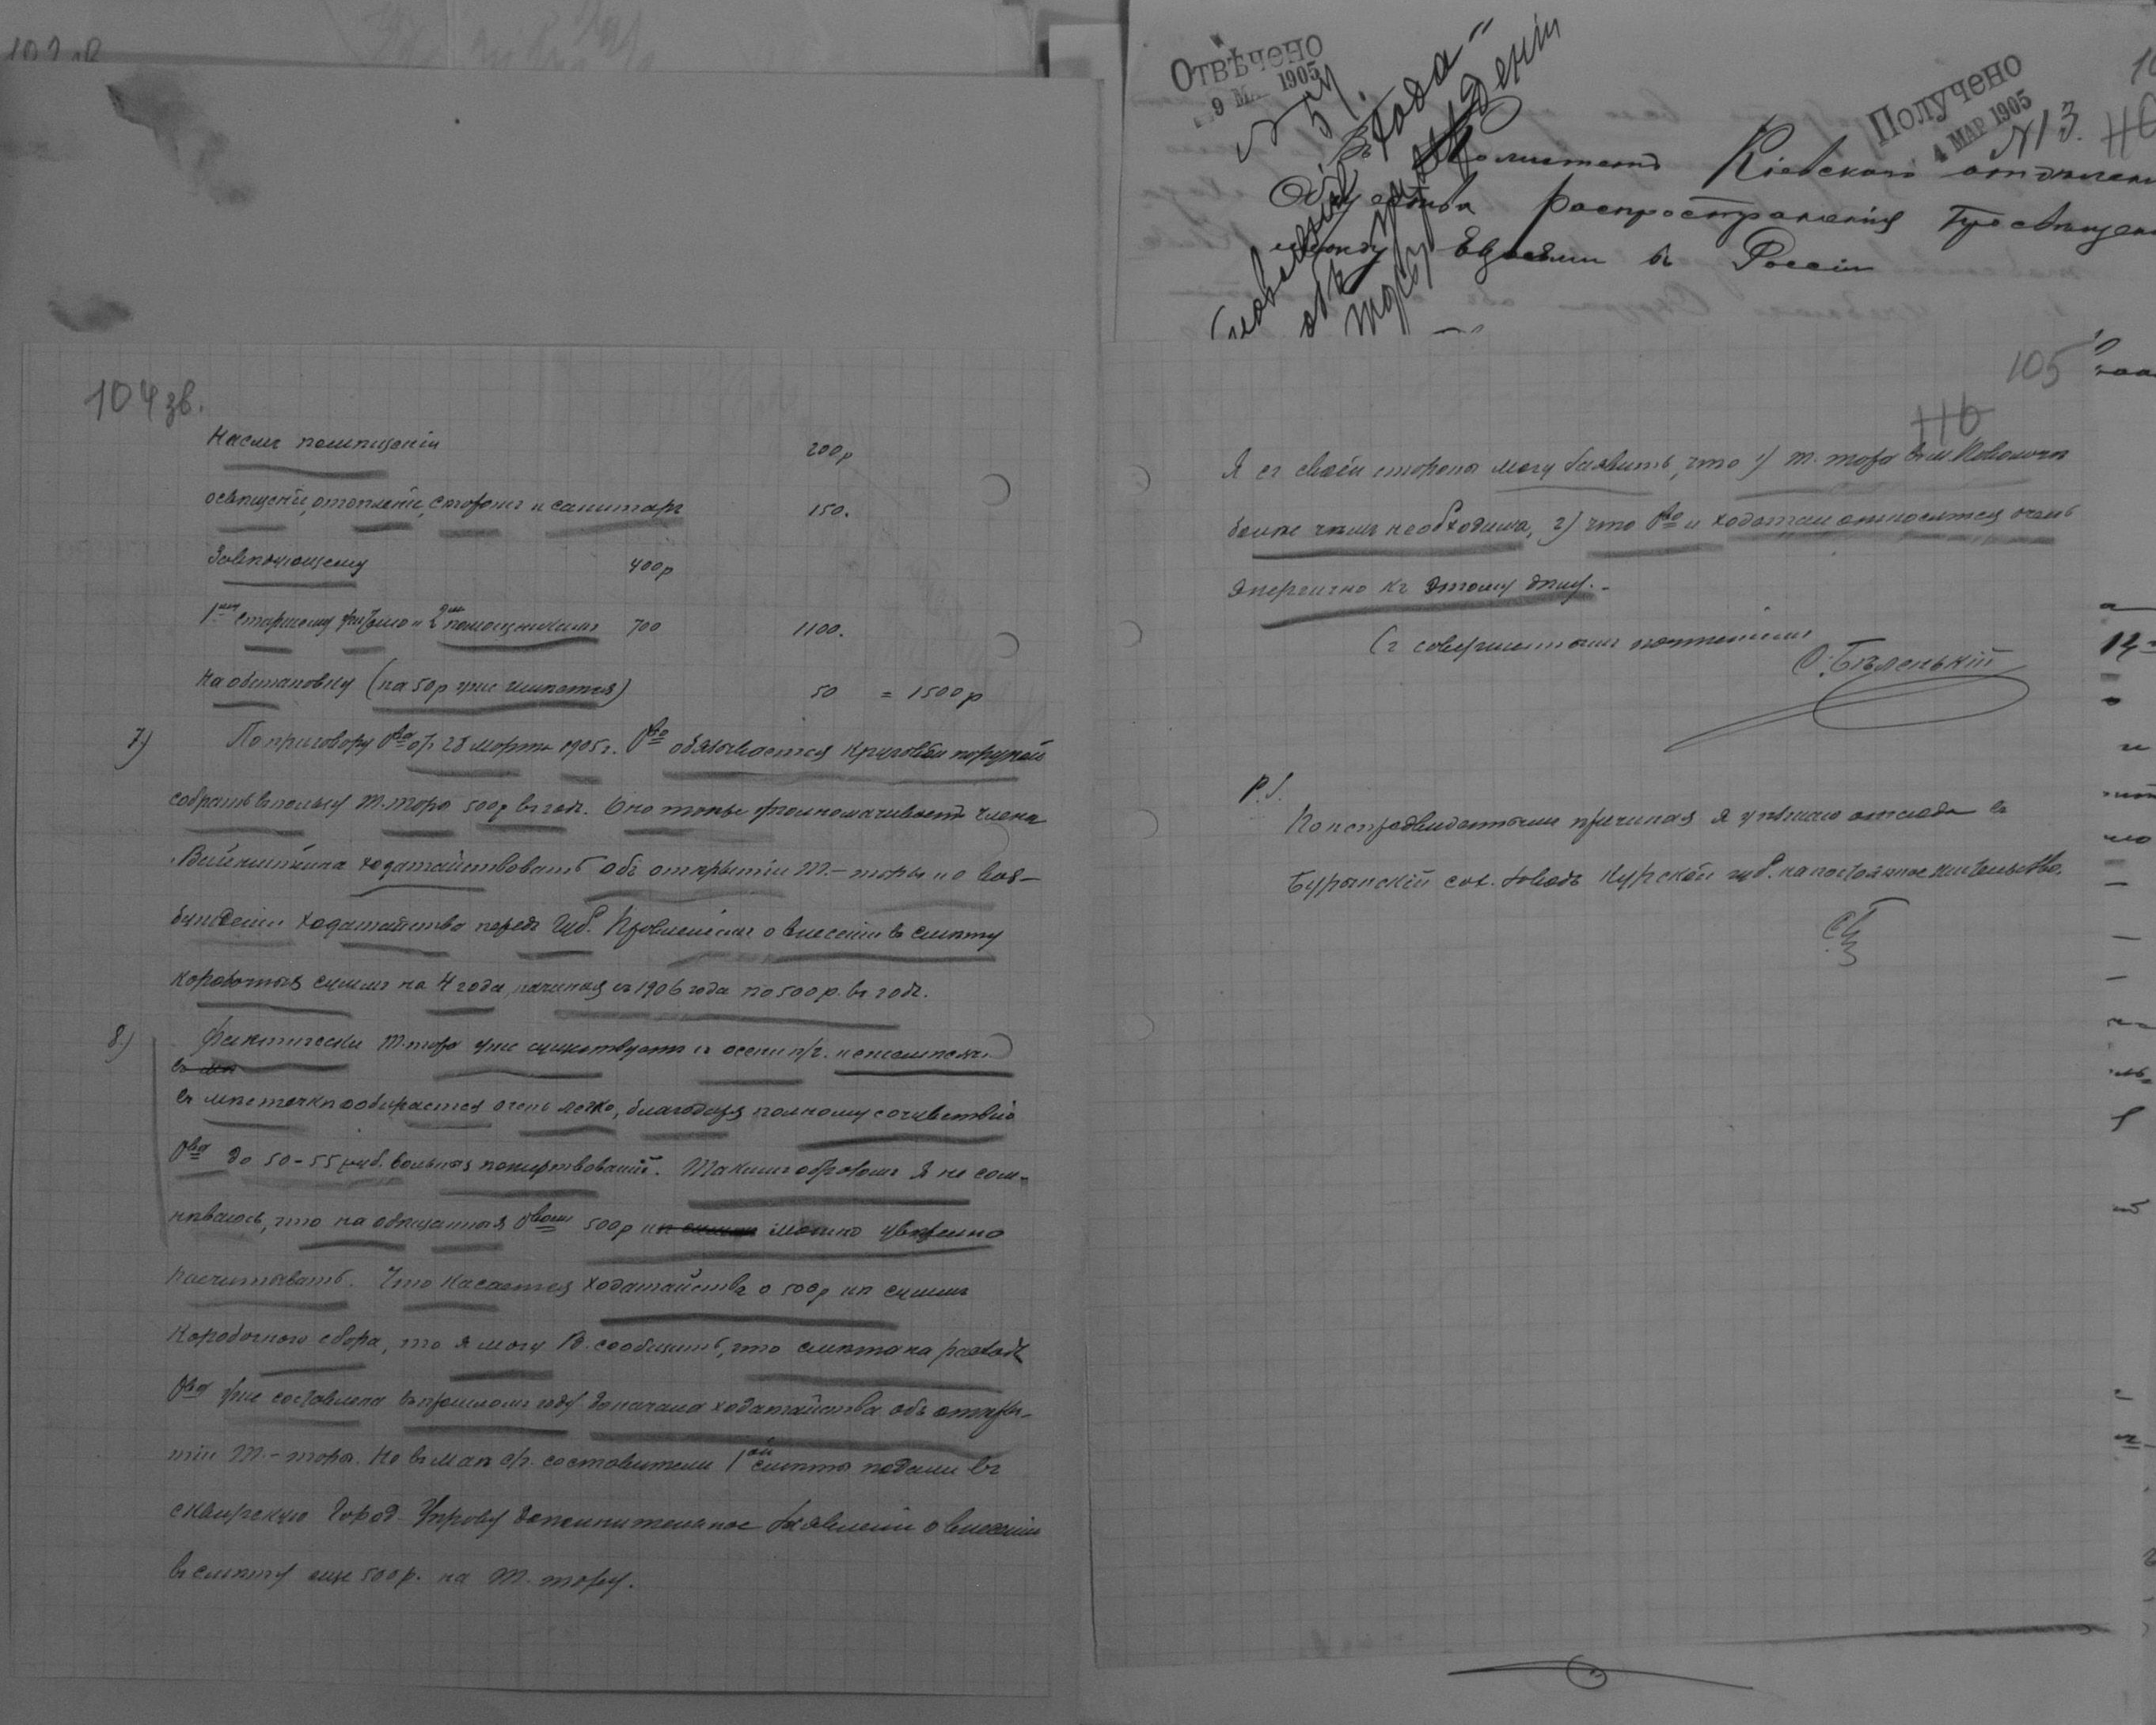 104 зв.
Наемъ помѣщенія 200р
освѣщеніе, отопленіе, сторожъ и санитаръ 150.
Завѣдующему 400р
1му старшему учителю и 2мъ помощникамъ 700 1100.
На обстановку (на 50р уже имѣется) 50 = 1500р
7) По приговору Ова отъ 28 Марта 1905г. Ово обязывается круговой порукой
собрать въ пользу Т.-тора 500р въ годъ. Оно также уполномачиваетъ члена
ходатайствовать объ открытіи Т.-торы и о воз-
бужденіи ходатайства передъ Губ. Правленіемъ о внесеніи въ смѣту
коробочныхъ суммъ на 4 года, начиная съ 1906 года по 500р. въ годъ.
8.) Фактически Т.-тора уже существуетъ съ осени п/г. и ежемѣсячно
въ мѣстечкѣ собирается очень легко, благодаря полному сочувствію
Ова до 50-55 руб. вольныхъ пожертвованій. Такимъ образомъ я не сом-
нѣваюсь, что на обѣщанныя Овомъ 500р можно увѣренно
расчитывать. Что касается ходатайства о 500р изъ суммъ
Коробочнаго сбора, то я могу В. сообщить, что смѣта на расходъ
Ова уже составлена въ прошломъ году до начала ходатайства объ откры-
тіи Т.-торы. Но въ маѣ с/г. составители 1ой смѣты подали въ
сквирскую Город. Управу дополнительное заявленіе о внесеніи
въ смѣту еще 500р. на Т.-тору.
Отвѣчено
9 МА 1905
Получено
4 МАР 1905
№13.
Комитетъ Кіевскаго отдѣлені
Общества распространенія Просвѣщені
между Евреями въ Россіи
105
110
Я съ своей стороны могу заявить, что 1) Т.-тора въ м.
болѣе чѣмъ необходима, 2) что Ово и ходатаи относятся очень
энергично къ этому дѣлу.-
Съ совершеннымъ почтеніемъ
С. Бѣленькій
P.S.
По непредвидѣннымъ причинамъ я уѣзжаю отсюда въ
Бурынскій сах. заводъ Курской губ. на постоянное жительство.
СБ